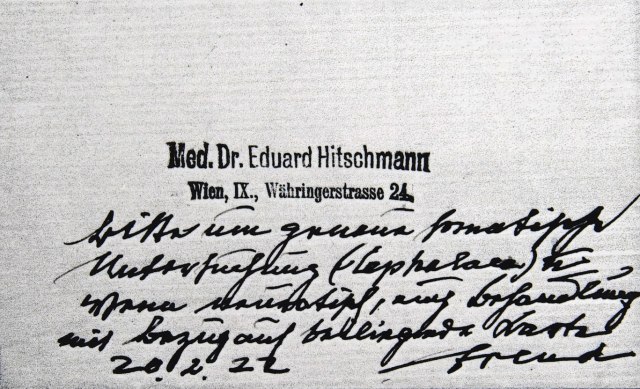 Med. Dr. Eduard Hitschmann
Wien, IX., Währingerstrasse 24.
bitte um genaue somatische
Untersuchung (Cephalaea) u
wenn neurotisch, um Behandlung
mit Bezug auf beiliegende Karte
20.2.22 Freud